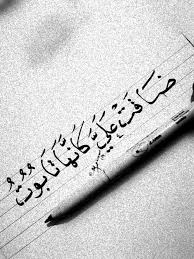 ضَاقَتْ عَلَيَّ كَأنَّهَا تَابُوتُ